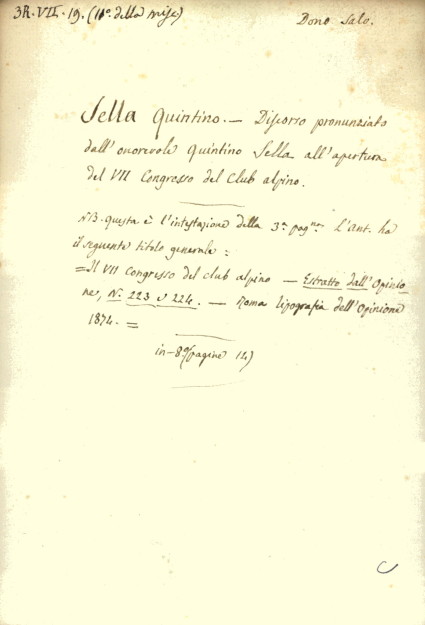 3R. VII. 19. (11º della misc)
Dono Salv.
Sella Quintino. — Discorso pronunziato
dall' onorevole Quintino Sella all' apertura
del VII Congresso del Club alpino.
NB. Questa è l'intestazione della 3ª pagna. L'ant. ha
il seguente titolo generale:
= Il VII Congresso del club alpino — Estratto dall' Opinio-
ne, N. 223 e 224. — Roma tipografia dell' Opinione
1874. =
in-8º (pagine 14)